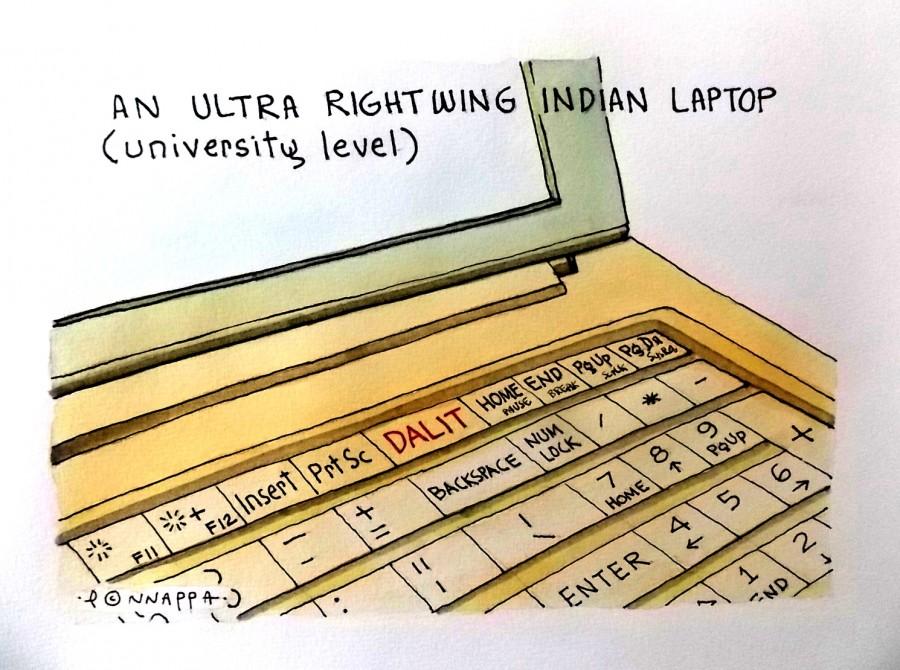 AN ULTRA RIGHTWING INDIAN LAPTOP
(university level)
HOME
PAUSE
END
BREAK
PgUp
PgDn
DALIT
PrtSc
Insert
F12
F11
BACKSPACE
NUM
LOCK
/
*
-
+
=
7
HOME
8
↑
9
PgUp
+
ENTER
4
←
5
6
→
1
END
2
↓
©NNAPPA